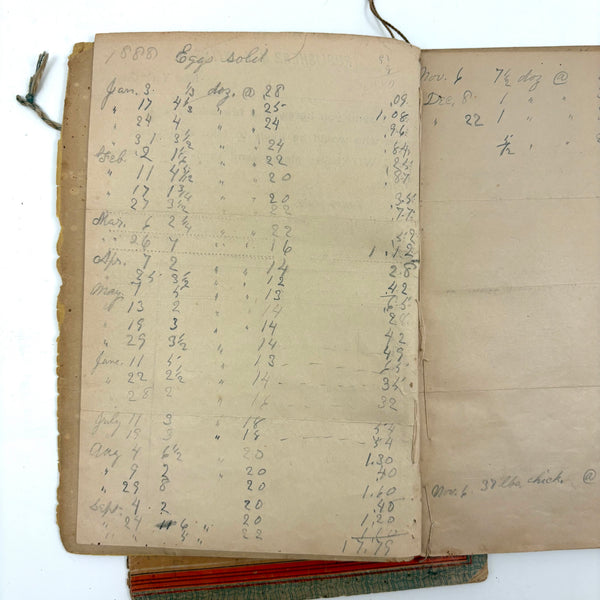 1888 Eggs sold
Jan. 3. 1/3 doz. @ 28 .09
" 17 4 1/3 " " 25 1.08
" 24 4 " " 24 .96
" 31 3 1/2 " " 24 .84
Feb. 2 1 1/6 " " 22 .25
" 11 " " 20 .87
" 17 1 3/4 " " 20 .35
" 27 3 1/2 " " 22 .77
Mar. 6 2 " " 22
" 26 7 " " 16 1.12
Apr. 7 2 " " 14 28
" 25 3 1/2 " " 12 .42
May 5 " " 13 .65
" 13 2 " 14 28
" 19 3 " " 14 42
" 29 3 1/2 " 14 49
June. 11 5 " 13 65
" 22 2 1/2 " 14 35
" 28 2 " 32
July 11 3 " 18 54
" 19 3 " 18 54
Aug 4 6 1/2 " 20 1.30
" 9 2 " 20 40
" 29 8 20 1.60
Sept. 4. 2 20 .40
" 24 6 " " 20 1.20
" 5 " 22
17.79
Nov. 6 7 1/2 doz @
Dec, 8. 1 " "
" 22 1 " "
1/2 "
Nov. 6 lbs. chick. @